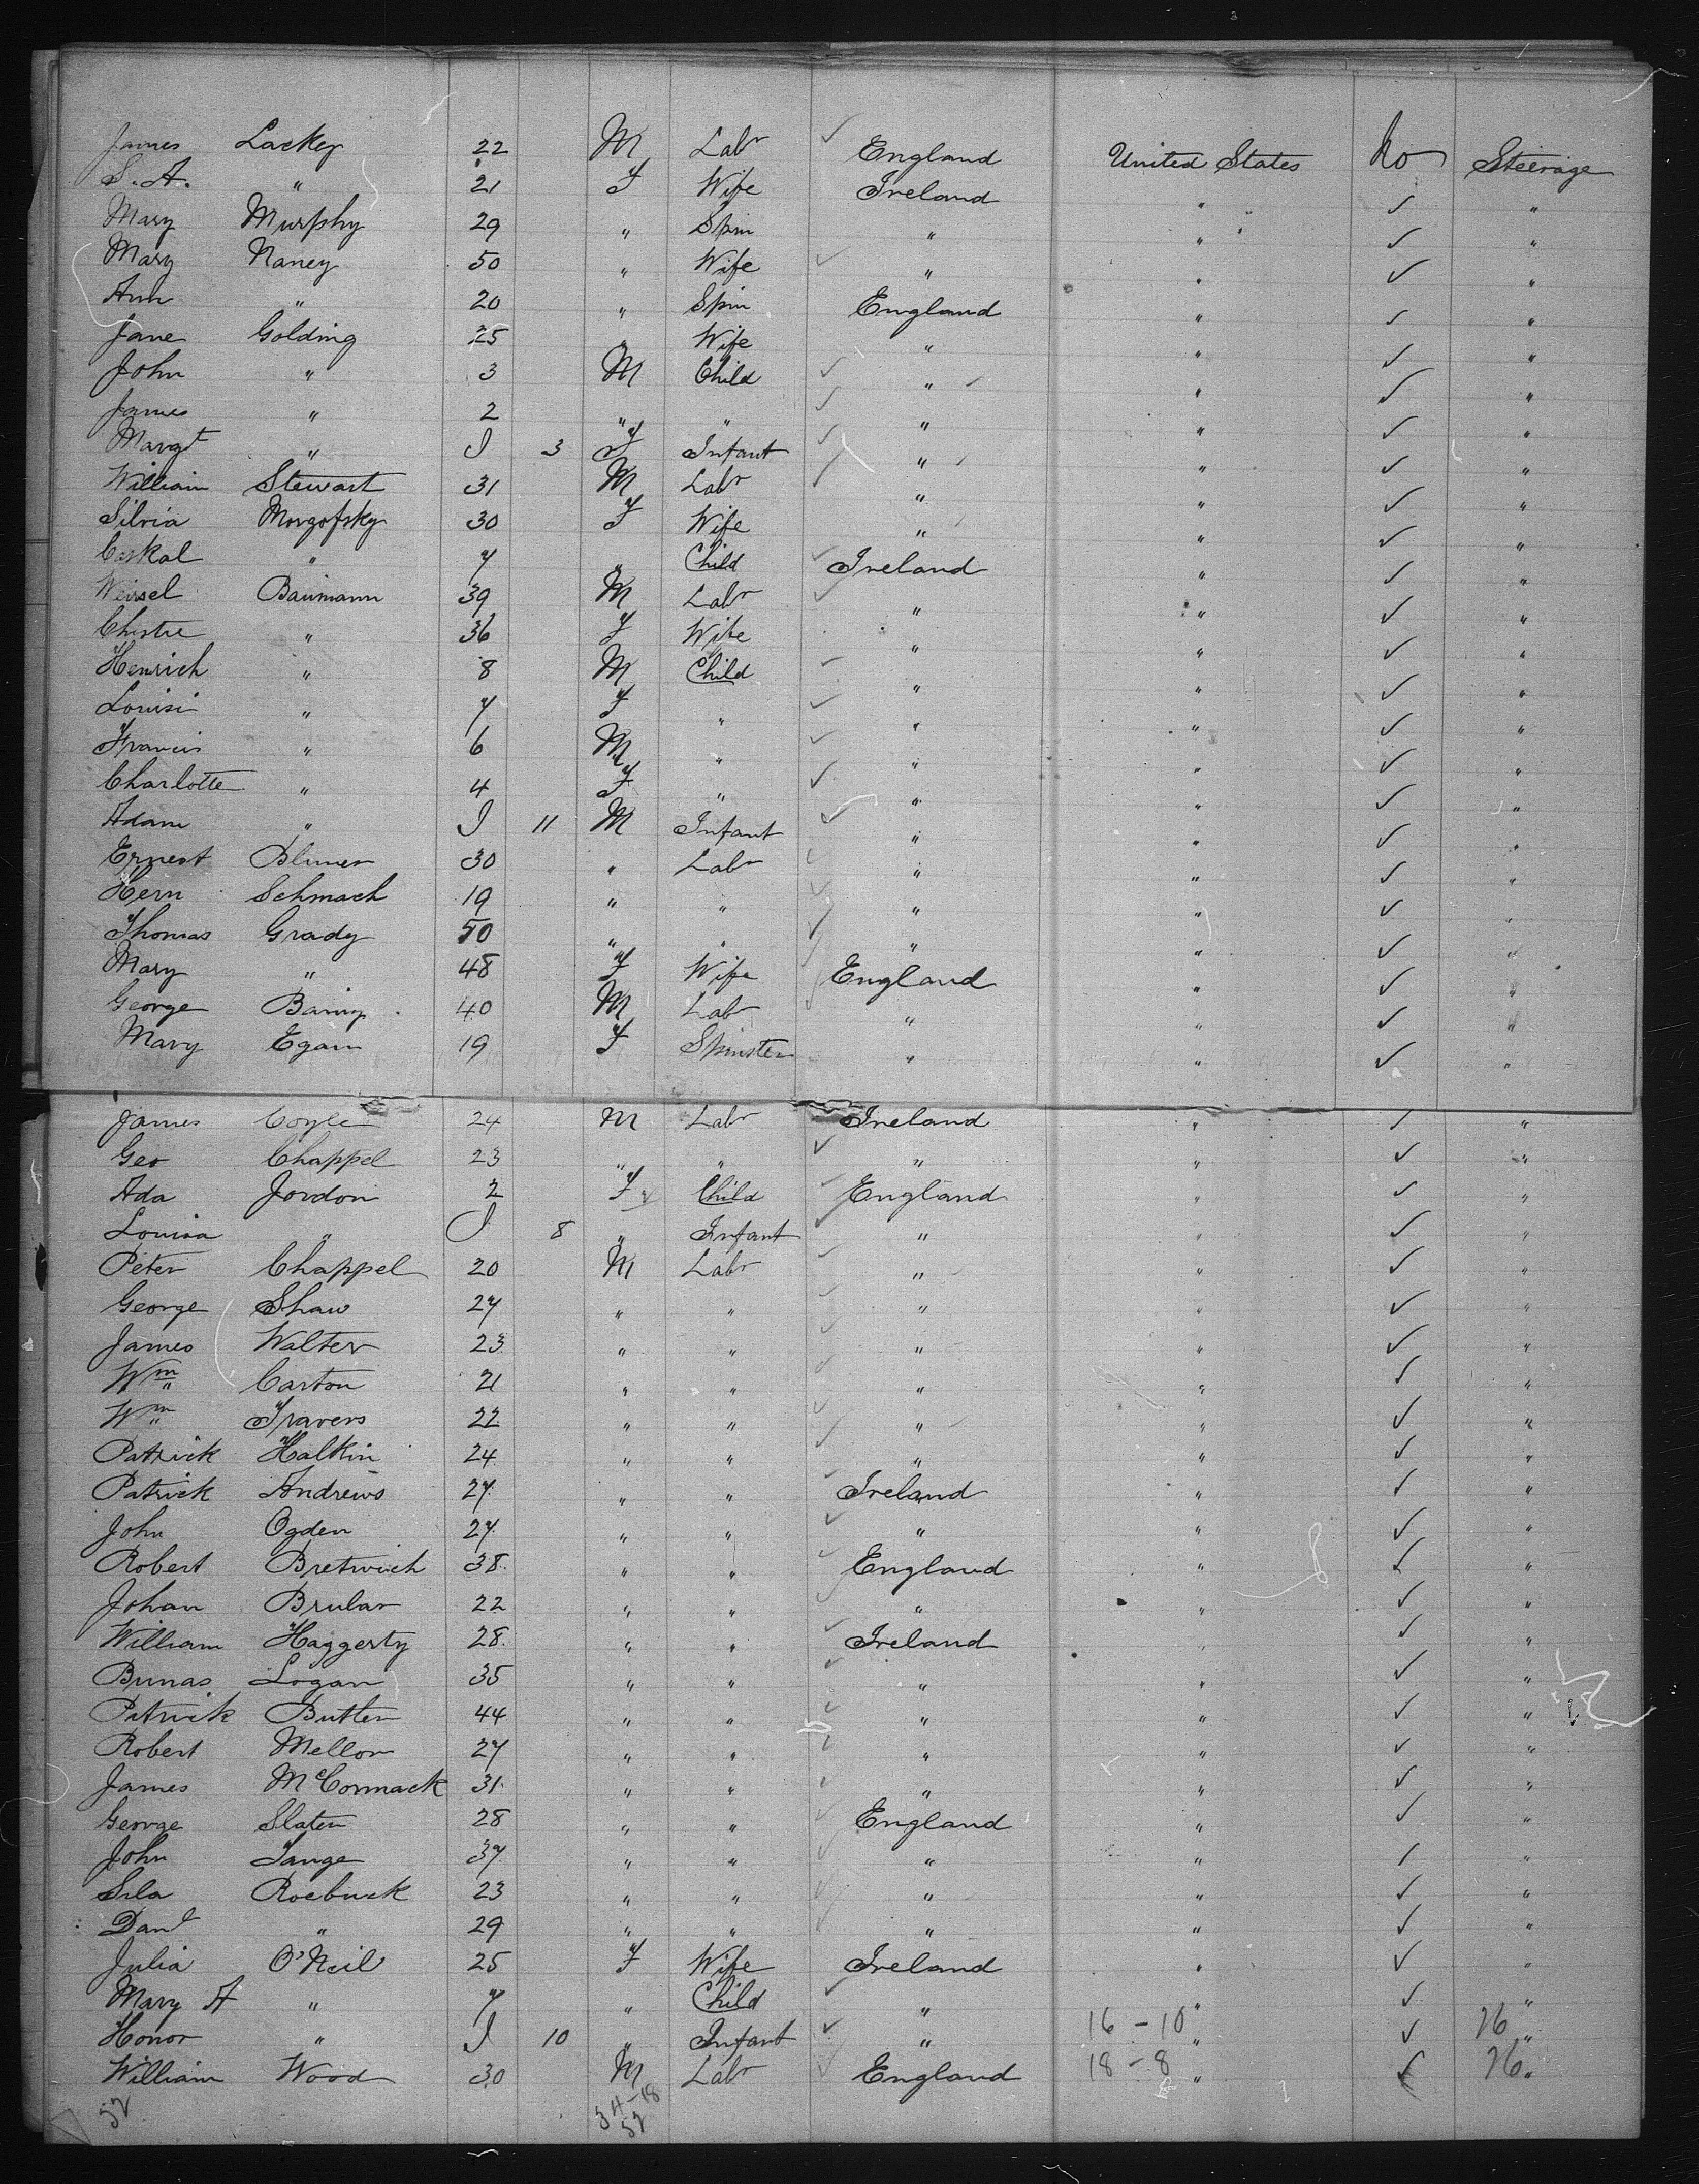 James Lackey 22 M Labr England United States No Steerage
S. A. " 21 F Wife Ireland " ✓ "
Mary Murphy 29 " Spin " " ✓ "
Mary Naney 50 " Wife " " ✓ "
Ann " 20 " Spin England " ✓ "
Jane Golding 25 " Wife " " ✓ "
John " 3 M Child " " ✓ "
James " 2 " " " " ✓ "
Margt " I 3 F Infant " " ✓ "
William Stewart 31 M Labr " " ✓ "
Silvia Morgofsky 30 F Wife " " ✓ "
Caskal " 7 " Child Ireland " ✓ "
Weisel Baumann 39 M Labr " " ✓ "
Chistre " 36 F Wife " " ✓ "
Henrich " 8 M Child " " ✓ "
Louisi " 7 F " " " ✓ "
Francis " 6 M " " " ✓ "
Charlotte " 4 F " " " ✓ "
Adam " I 11 M Infant " " ✓ "
Ernest Blumer 30 " Labr " " ✓ "
Hern Schmach 19 " " " " ✓ "
Thomas Grady 50 " " " " ✓ "
Mary " 48 F Wife England " ✓ "
George 40 M Labr " " ✓ "
Mary Egan 19 F Spinster " " ✓ "
James Coyle 24 M Labr Ireland " ✓ "
Geo Chappel 23 " " " " ✓ "
Ada Jordon 2 F Child England " ✓ "
Louisa " I 8 " Infant " " ✓ "
Peter Chappel 20 M Labr " " ✓ "
George Shaw 27 " " " " ✓ "
James Walter 23 " " " " ✓ "
Wm Carton 21 " " " " ✓ "
Wm Travers 22 " " " " ✓ "
Patrick Halkin 24 " " " " ✓ "
Patrick Andrews 27 " " Ireland " ✓ "
John Ogden 27 " " " " ✓ "
Robert Bretwich 38 " " England " ✓ "
Johan Brular 22 " " " " ✓ "
William Haggerty 28 " " Ireland " ✓ "
Bunas Logan 35 " " " " ✓ "
Patrick Butler 44 " " " " ✓ "
Robert Mellor 27 " " " " ✓ "
James McCormack 31 " " " " ✓ "
George Slater 28 " " England " ✓ "
John Tange 37 " " " " ✓ "
Sila Roebuck 23 " " " " ✓ "
Danl " 29 " " " " ✓ "
Julia O'Neil 25 F Wife Ireland " ✓ "
Mary A " 7 " Child " " ✓ "
Honor " I 10 " Infant " 16 - 10 " ✓ 26 "
William Wood 30 M Labr England 18 - 8 " ✓ 26 "
52 34-18
52